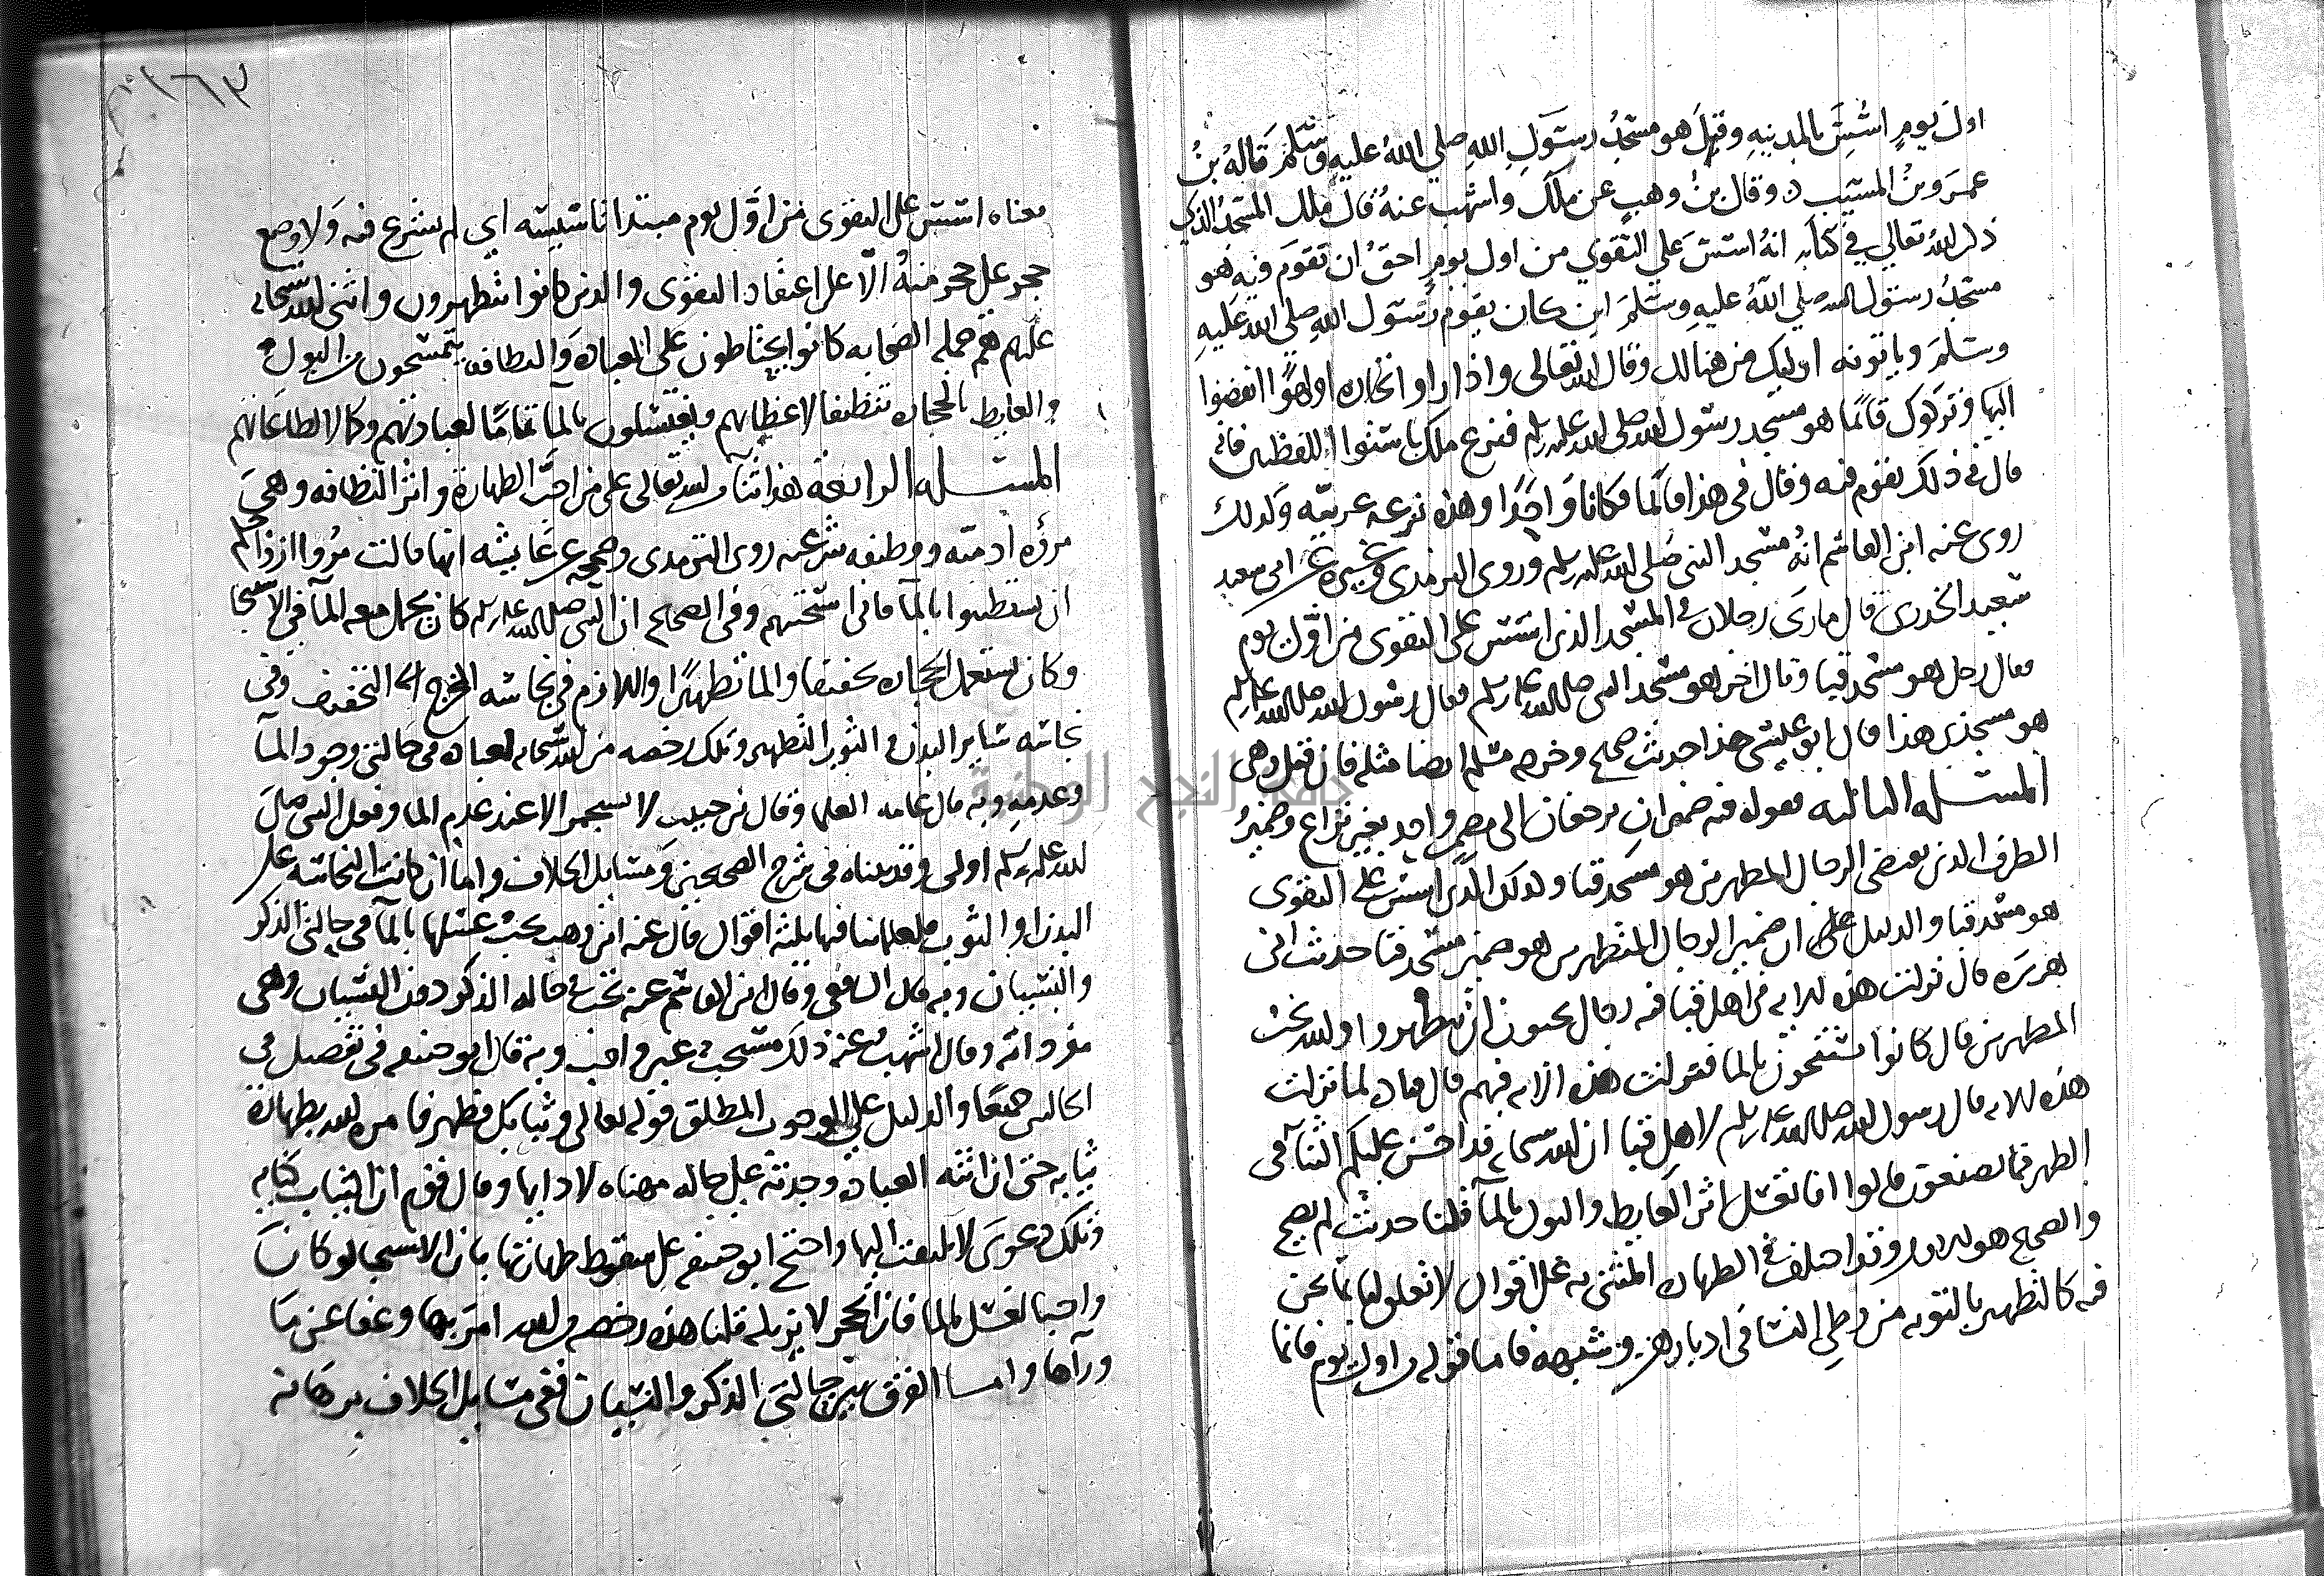 اول يوم اسس بالمدينه وقيل هو مسجد رسول الله صلى الله عليه وسلم قاله بن
عمر وبن المسيب وقال بن وهب عن ملك واشهب عنه قال ملك المسجد الذي
ذكر الله تعالى في كتابه انه اسس على التقوى من اول يوم احق ان تقوم فيه هو
مسجد رسول الله صلى الله عليه وسلم اين كان يقوم رسول الله صلى الله عليه
وسلم وياتونه اوليك من هنالك وقال الله تعالى واذا راوا تجاره او لهوا انفضوا
اليها وتركوك قائما هو مسجد رسول الله صلى الله عليه وسلم فنزع ملك باستوا اللفظين فانه
قال في ذلك تقوم فيه وقال في هذا قائما فكانا واحدا وهذه نزعه عربيه وكذلك
روى عنه ابن القاسم انه مسجد النبي صلى الله عليه وسلم وروى الترمذي وغيره عن ابي سعيد
سعيد الخدري قال مارى رجلان في المسجد الذي اسس على التقوى من اول يوم
فقال رجل هو مسجد قبا وقال اخر هو مسجد النبي صلى الله عليه وسلم فقال رسول الله صلى الله عليه وسلم
هو مسجدي هذا قال ابو عيسى هذا حديث صحيح وخرجه مسلم ايضا مثله فان قيل وهي
المسله الثالثه قوله فيه ضميران يرجعان الى مضمر واحد بغير نزاع وضمير
الظرف الذي يقتضي الرجال المطهرين هو مسجد قبا وكذلك الذي اسس على التقوى
هو مسجد قبا والدليل على ان ضمير الرجال المتطهرين هو ضمير مسجد قبا حديث ابي
هريره قال نزلت هذه الايه في اهل قبا فيه رجال يحبون ان يتطهروا والله يحب
المطهرين قال كانوا يستنجون بالما فنزلت هذه الايه فيهم قال قتاده لما نزلت
هذه الايه قال رسول الله صلى الله عليه وسلم لاهل قبا ان الله سبحانه قد احسن عليكم الثنا في
الطهر فما تصنعون قالوا انا نغسل اثر الغايط والبول بالما قلنا حديث لم يصح
والصحيح هو الاول وقد اختلف في الطهاره المثنى به على اقوال لا تعلق لها بما نحن
فيه كالتطهر بالتوبه من وطي النسا في ادبارهن وشبهه فاما قوله من اول يوم فانما
١٦٣
معناه اسس على التقوى من اول يوم مبتدا تاسيسه اي لم يشرع فيه ولا وضع
حجر على حجر منه الا على اعتقاد التقوى والذين كانوا يتطهرون واثنى الله سبحانه
عليهم هم جمله الصحابه كانوا يحتاطون على العباده والنظافه يتمسحون من البول و
والغايط بالحجاره تنظيفا لاعضايهم ويغتسلون بالما تماما لعبادتهم وكمالا لطاعاتهم
المسله الرابعه هذا ثنا من الله تعالى على من احب الطهارة واثر النظافه وهي
مروه ادميه ووظيفه شرعيه روى الترمذي وصححه عن عايشه انها قالت مروا ازواجكم
ان يستطيبوا بالما فاني استحييهم وفي الصحيح ان النبي صلى الله عليه وسلم كان يحمل معه الما في الاستنجا
وكان يستعمل الحجاره تخفيفا والما تطهيرا واللازم في نجاسه المخرج التخفيف وفي
نجاسه ساير البدن والثوب التطهير وتلك رخصه من الله سبحانه لعباده في حالتي وجود الما
وعدمه وبه قال عامه العلما وقال بن حبيب لا يستجمر الا عند عدم الما وفعل النبي صلى
الله عليه وسلم اولى وقد بيناه في شرح الصحيحين ومسايل الخلاف واما ان كانت النجاسه على
البدن او الثوب فلعلماينا فيها ثلثه اقوال قال عنه ابن وهب يجب غسلها بالما في حالتي الذكر
والنسيان وبه قال الشافعي وقال ابن القاسم عنه تجب في حاله الذكر دون النسيان وهي
مفرداته وقال اشهب عنه ذلك مستحب غير واجب وبه قال ابو حنيفه في تفصيل في
الحالين جميعا والدليل على الوجوب المطلق قوله تعالى وثيابك فطهر فامره الله بطهارة
ثيابه حتى ان اتته العباده وجدته على حاله مهياه لادايها وقال قوم ان الثياب كنايه
وتلك دعوى لا يلتفت اليها واحتج ابو حنيفه على سقوط طهارتها بان الاستنجا لو كان
واجبا لغسل بالما فان الحجر لا يزيله قلنا هذه رخصه من الله امر بها وعفا عن ما
وراها واما الفرق بين حالتي الذكر والنسيان ففي مسايل الخلاف برهانه
جامعة النجاح الوطنية